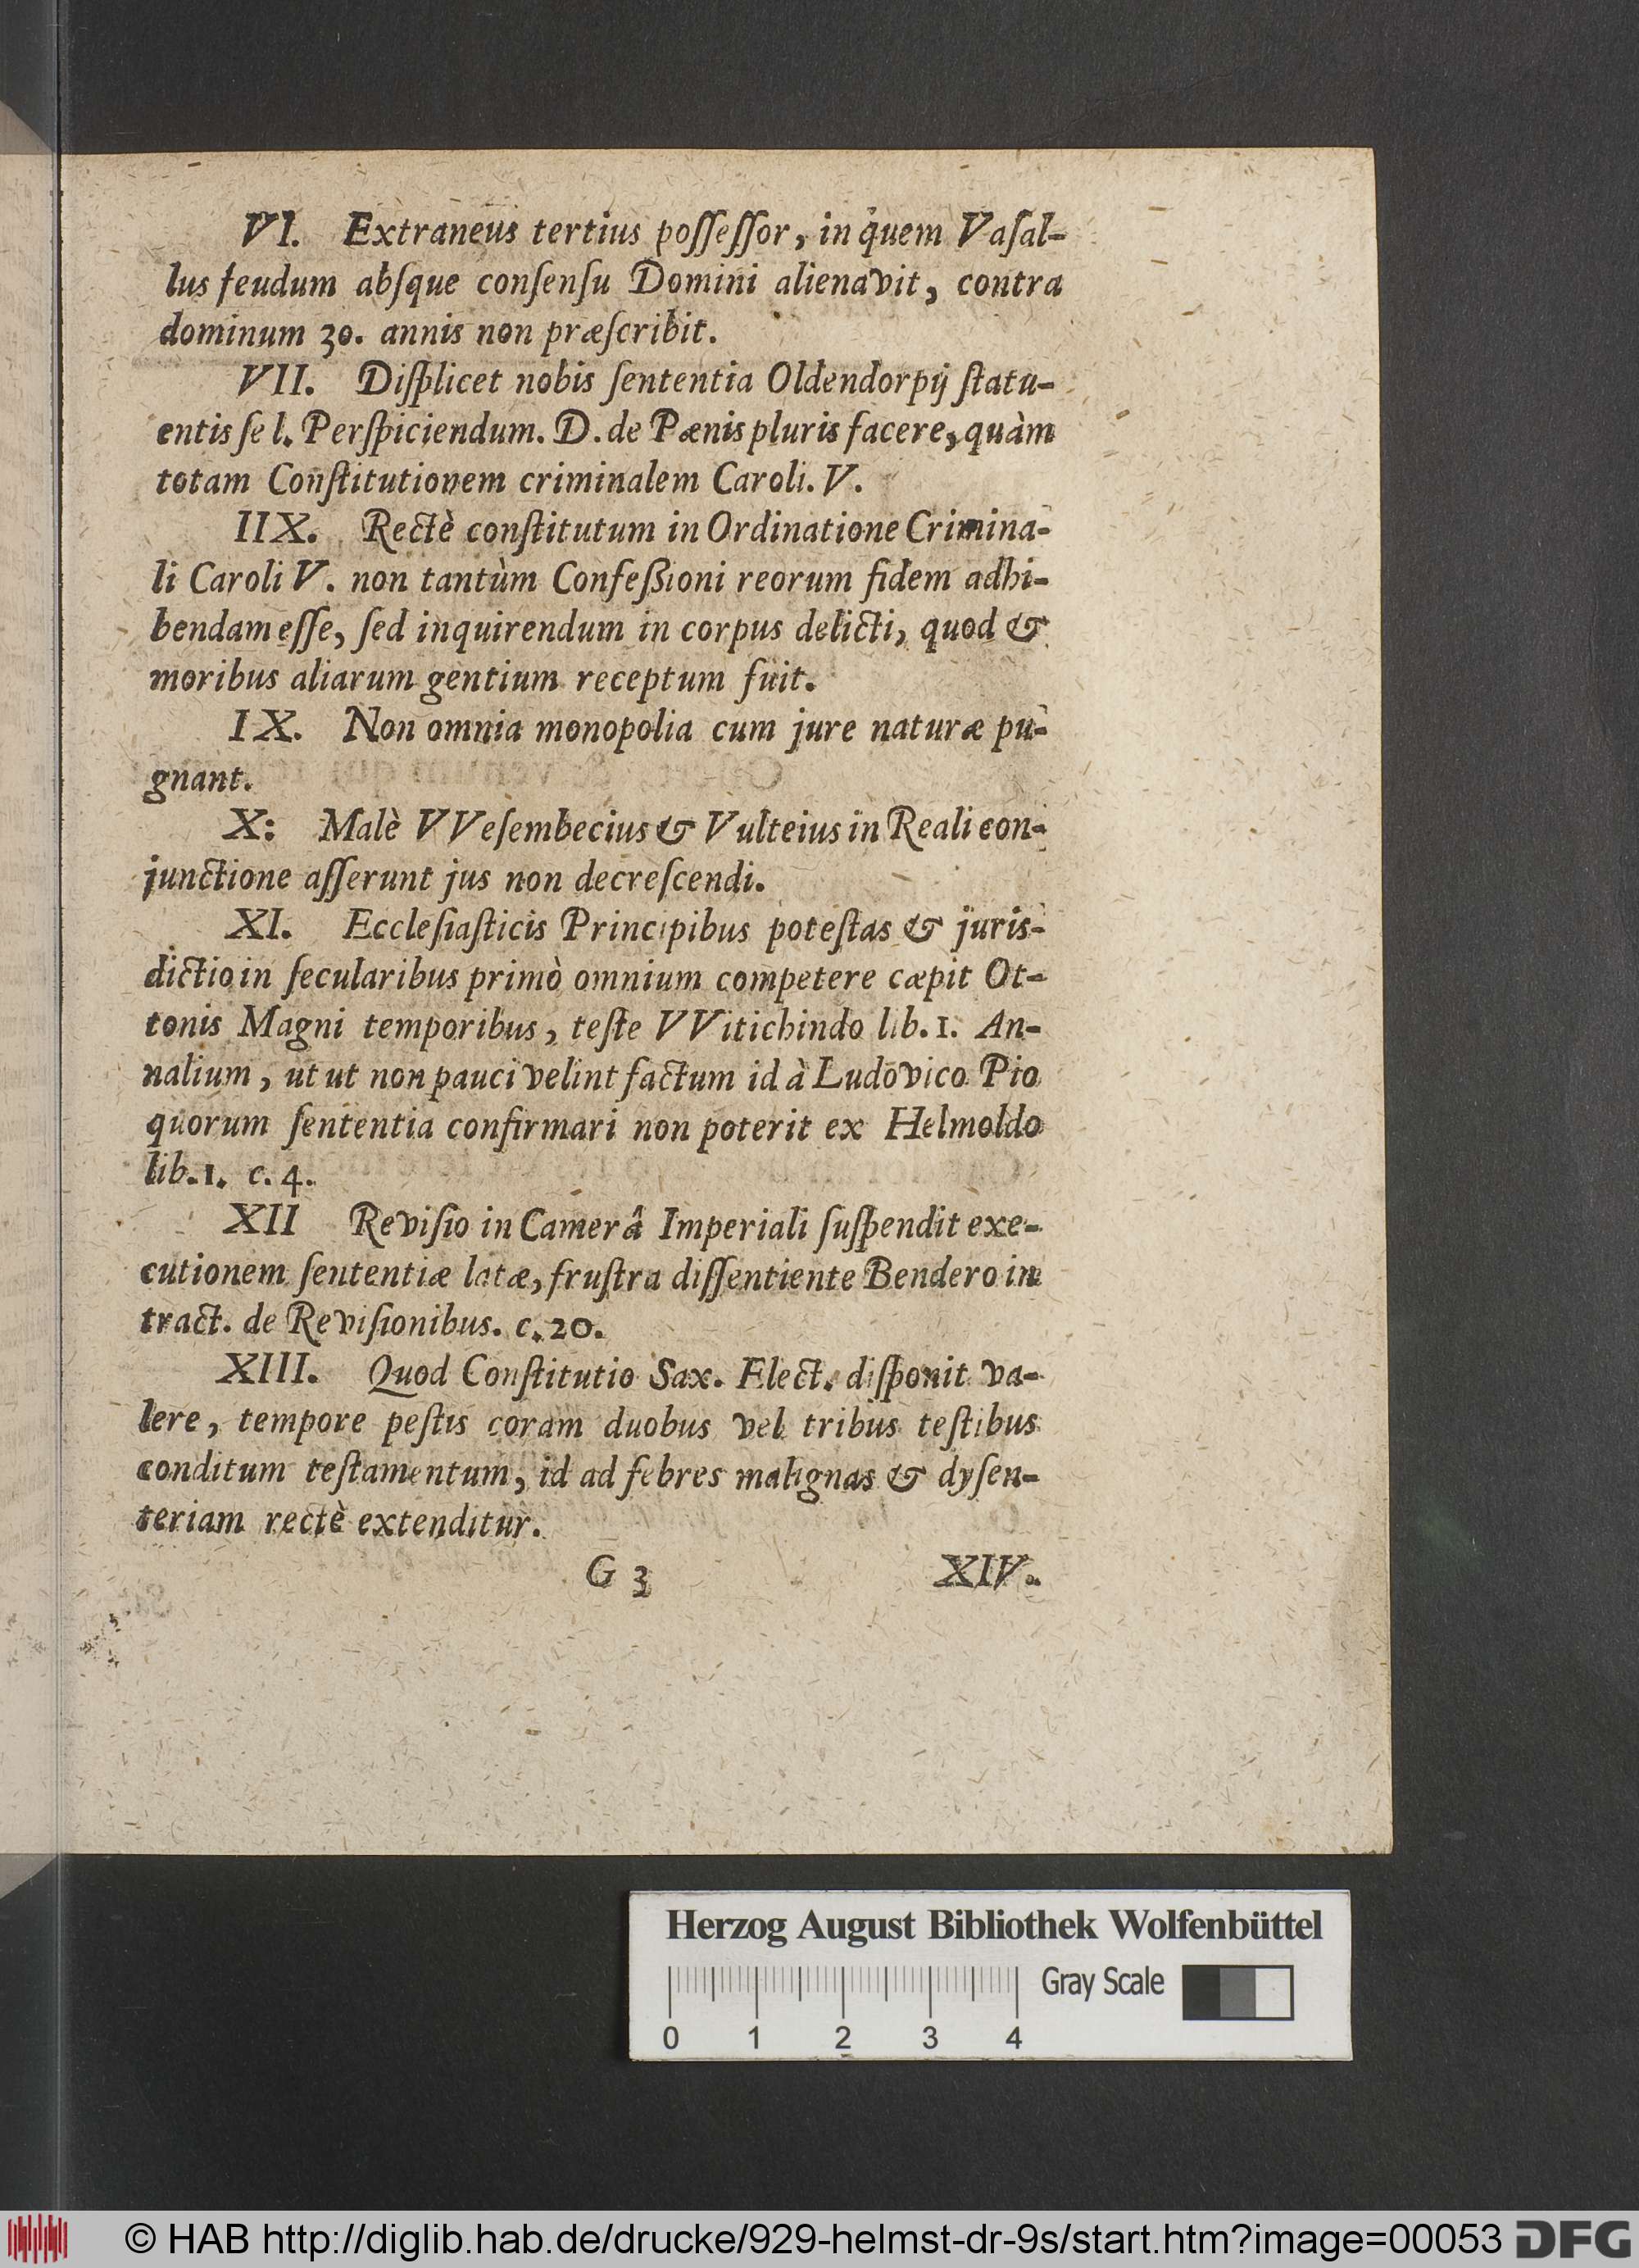 VI. Extraneus tertius poſſeſſor, in quem Vaſal-
lus feudum abſque conſenſu Domini alienavit, contra
dominum 30. annis non præſcribit.
VII. Diſplicet nobis ſententia Oldendorpij ſtatu-
entis ſe l. Perſpiciendum. D. de Pœnis pluris facere, quàm
totam Conſtitutionem criminalem Caroli. V.
IIX. Rectè conſtitutum in Ordinatione Crimina-
li Caroli V. non tantùm Confeßioni reorum fidem adhi-
bendam eſſe, ſed inquirendum in corpus delicti, quod &
moribus aliarum gentium receptum fuit.
IX. Non omnia monopolia cum jure naturæ pu-
gnant.
X: Malè VVeſembecius & Vulteius in Reali con-
junctione aſſerunt jus non decreſcendi.
XI. Eccleſiaſticis Principibus poteſtas & juris-
dictio in ſecularibus primò omnium competere cæpit Ot-
tonis Magni temporibus, teſte VVitichindo lib. 1. An-
nalium, ut ut non pauci velint factum id à Ludovico Pio
quorum ſententia confirmari non poterit ex Helmoldo
lib. 1. c. 4.
XII Reviſio in Camerâ Imperiali ſuſpendit exe-
cutionem ſententiæ latæ, fruſtra diſſentiente Bendero in
tract. de Reviſionibus. c. 20.
XIII. Quod Conſtitutio Sax. Elect. diſponit va-
lere, tempore peſtis coram duobus vel tribus teſtibus
conditum teſtamentum, id ad febres malignas & dyſen-
teriam rectè extenditur.
G 3 XIV.
Herzog August Bibliothek Wolfenbüttel
Gray Scale
0 1 2 3 4
© HAB http://diglib.hab.de/drucke/929-helmst-dr-9s/start.htm?image=00053 DFG